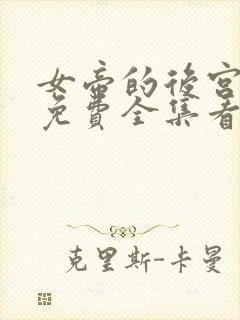 女帝的後宮
免費全集看
克里斯-卡曼